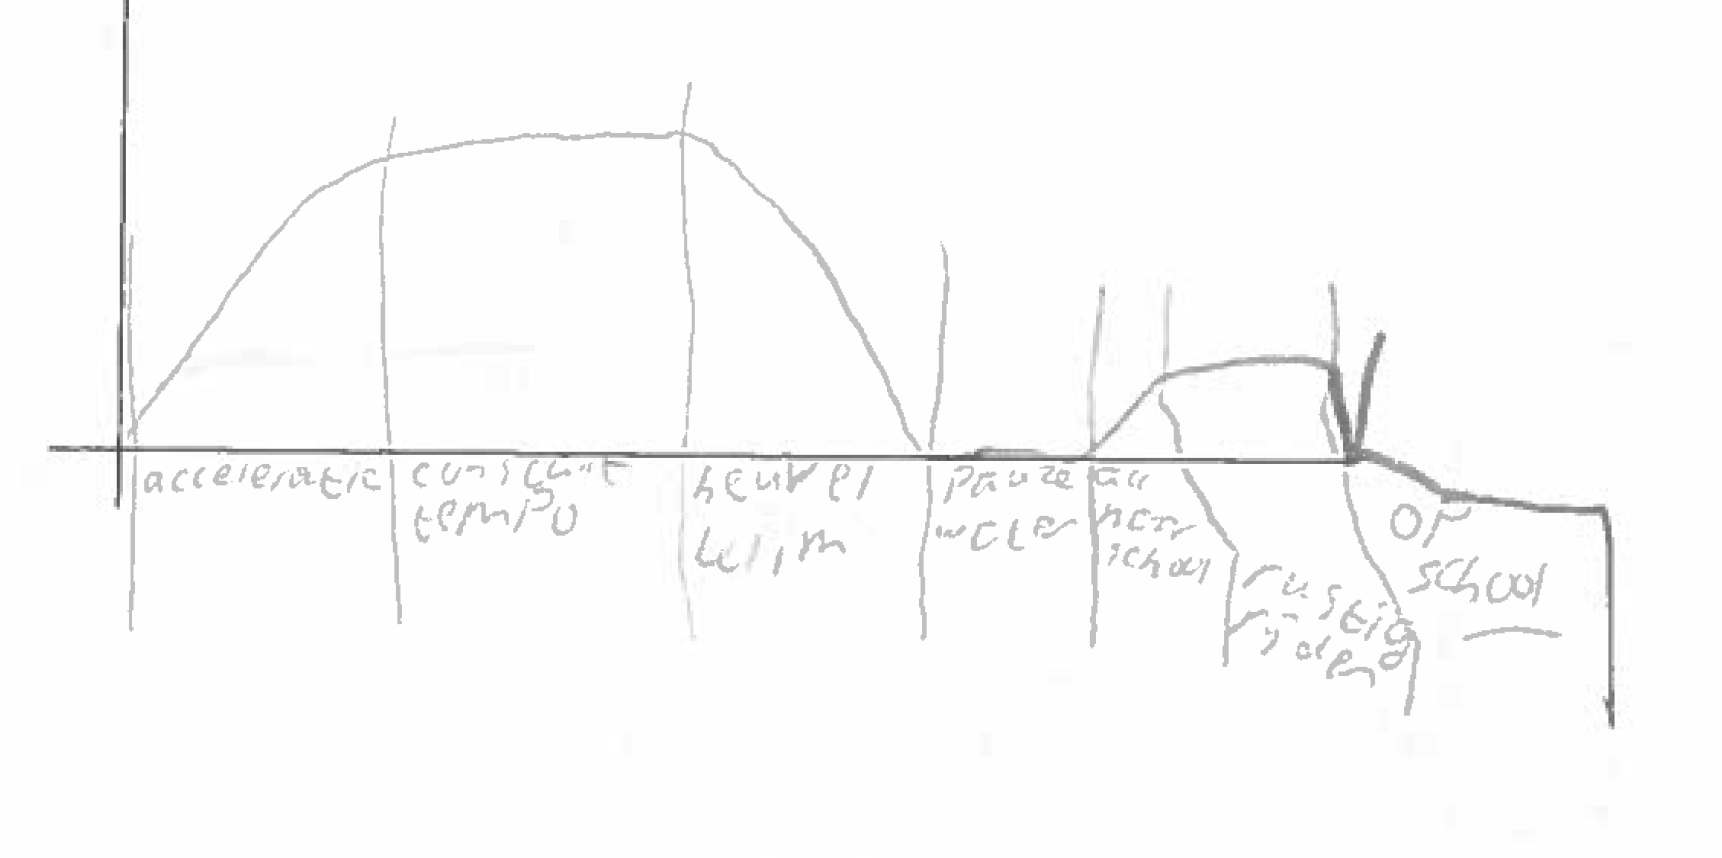 acceleratie
constant
tempo
heuvel
pauze
water
naar
school
rustig
rijden
op
school